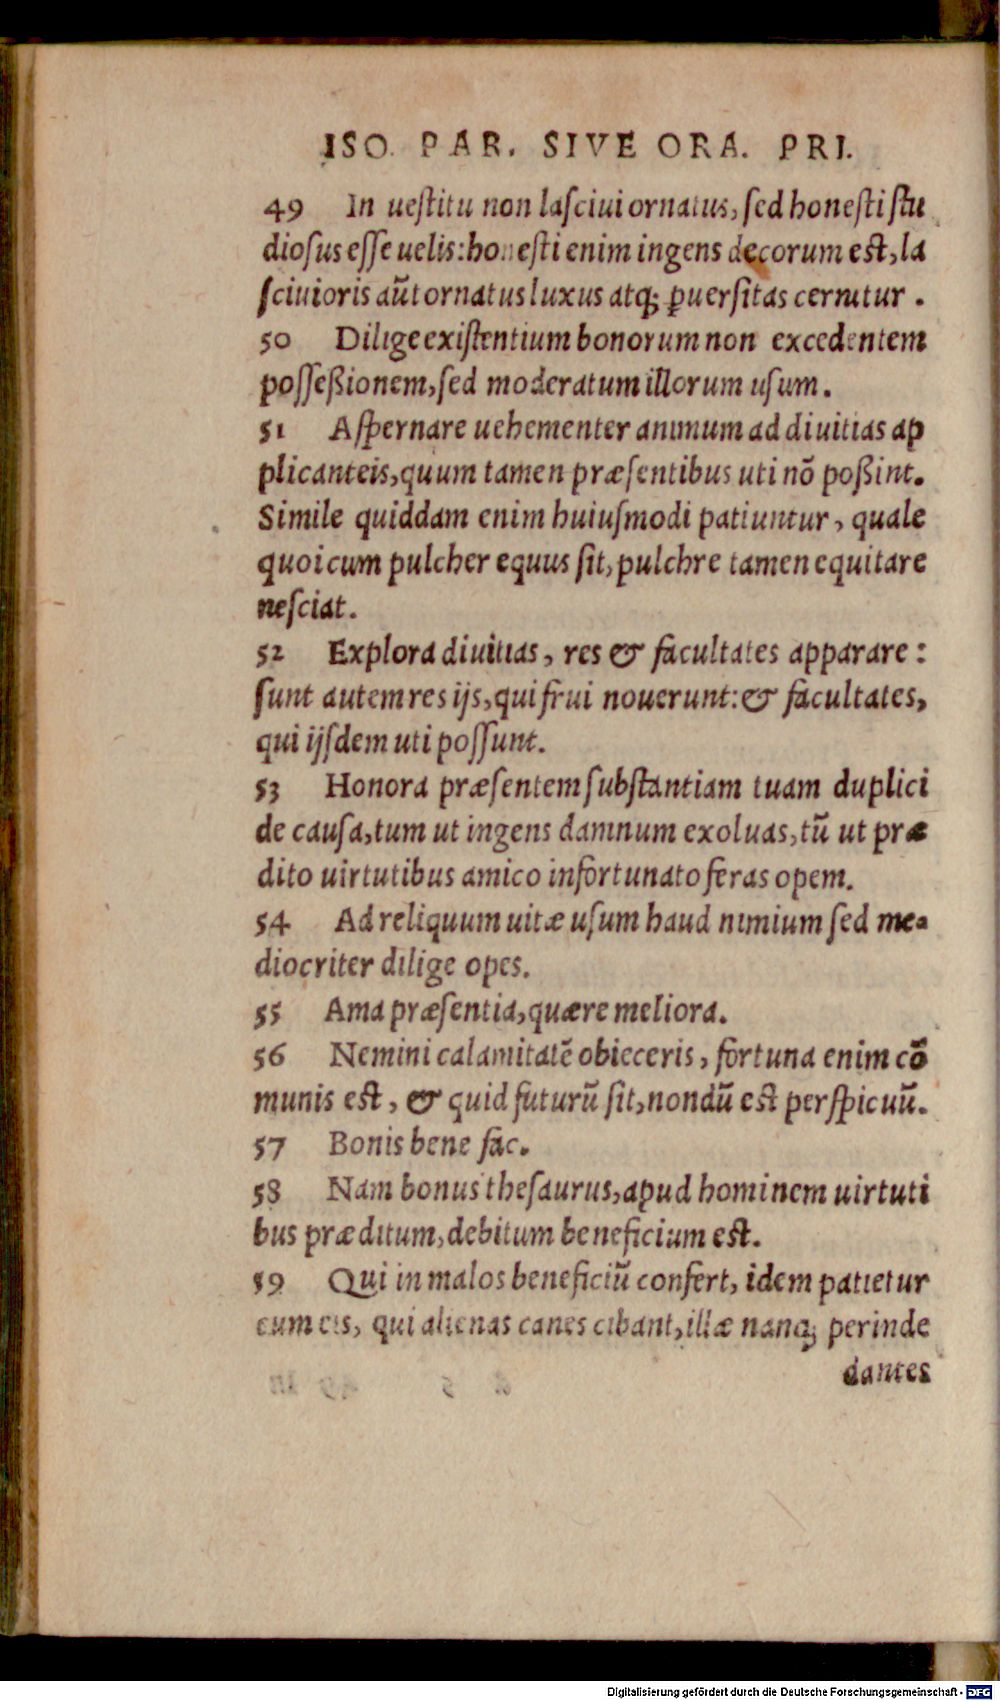 ISO. PAR. SIVE ORA. PRI.
49 In ueſtitu non laſciui ornatus, ſed honeſti ſtu
dioſus eſſe uelis: honeſti enim ingens decorum eſt, la
ſciuioris aūt ornatus luxus atq; ꝑuerſitas cernitur .
50 Dilige exiſtentium bonorum non excedentem
poſſeßionem, ſed moderatum illorum uſum.
51 Aſpernare uehementer animum ad diuitias ap
plicanteis, quum tamen præſentibus uti nō poßint.
Simile quiddam enim huiuſmodi patiuntur, quale
quoicum pulcher equus ſit, pulchre tamen equitare
neſciat.
52 Explora diuitias, res & facultates apparare :
ſunt autem res ijs, qui frui nouerunt: & facultates,
qui ijſdem uti poſſunt.
53 Honora præſentem ſubſtantiam tuam duplici
de cauſa, tum ut ingens damnum exoluas, tū ut præ
dito uirtutibus amico infortunato feras opem.
54 Ad reliquum uitæ uſum haud nimium ſed me-
diocriter dilige opes.
55 Ama præſentia, quære meliora.
56 Nemini calamitatē obieceris, fortuna enim cō
munis eſt, & quid futurū ſit, nondū eſt perſpicuū.
57 Bonis bene fac.
58 Nam bonus theſaurus, apud hominem uirtuti
bus præditum, debitum beneficium eſt.
59 Qui in malos beneficiū confert, idem patietur
cum eis, qui alienas canes cibant, illæ nanq; perinde
dantes
Digitalisierung gefördert durch die Deutsche Forschungsgemeinschaft - DFG